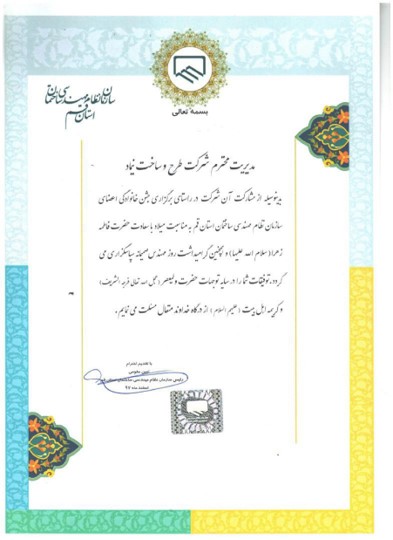 بسمه تعالی
سازمان نظام مهندسی ساختمان
استان قم
مدیریت محترم شرکت طرح و ساخت نماد
بدینوسیله از مشارکت آن شرکت در راستای برگزاری جشن خانوادگی اعضای
سازمان نظام مهندسی ساختمان استان قم به مناسبت میلاد با سعادت حضرت فاطمه
زهرا (سلام الله علیها) و همچنین گرامیداشت روز مهندس صمیمانه سپاسگزاری می
گردد، توفیقات شما را در سایه توجهات حضرت ولیعصر (عجل الله تعالی فرجه الشریف)
و کریمه اهل بیت (علیهم السلام) از درگاه خداوند متعال مسئلت می نمایم.
با تقدیم احترام
رئیس سازمان نظام مهندسی ساختمان استان قم
اسفند ماه ۹۷